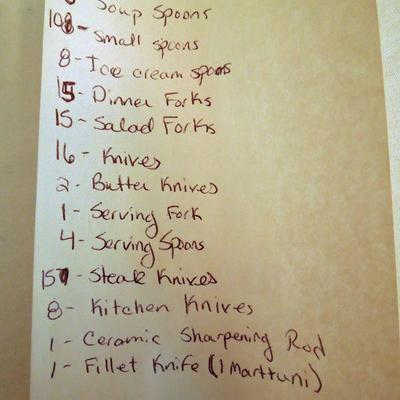 Soup Spoons
108- Small spoons
8- Ice cream spoons
15- Dinner Forks
15- Salad Forks
16- Knives
2- Butter Knives
1- Serving Fork
4- Serving Spoons
15 - Steak Knives
8- Kitchen Knives
1- Ceramic Sharpening Rod
1- Fillet Knife (1 Marttuni)